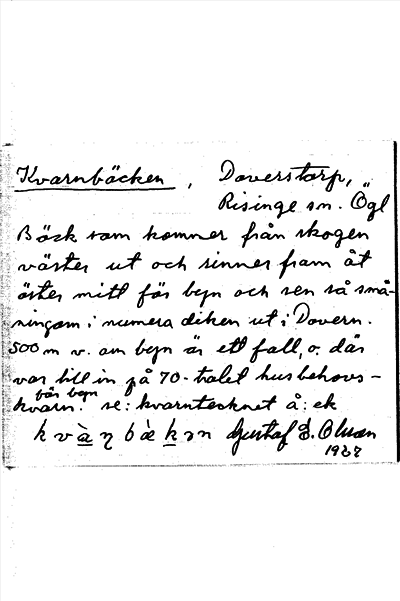 Kvarnbäcken, Doverstorp,
Risinge sn. Ögl
Bäck som kommer från skogen
väster ut och rinner fram åt
öster mitt för byn och sen så små-
ningom i numera diken ut i Dovern.
500 m v. om byn är ett fall, o. där
var till in på 70-talet husbehovs-
kvarn. för byn se: kvarntecknet å: ek
k v à η b æ̀ k ɔ n Gustaf E. Olsson